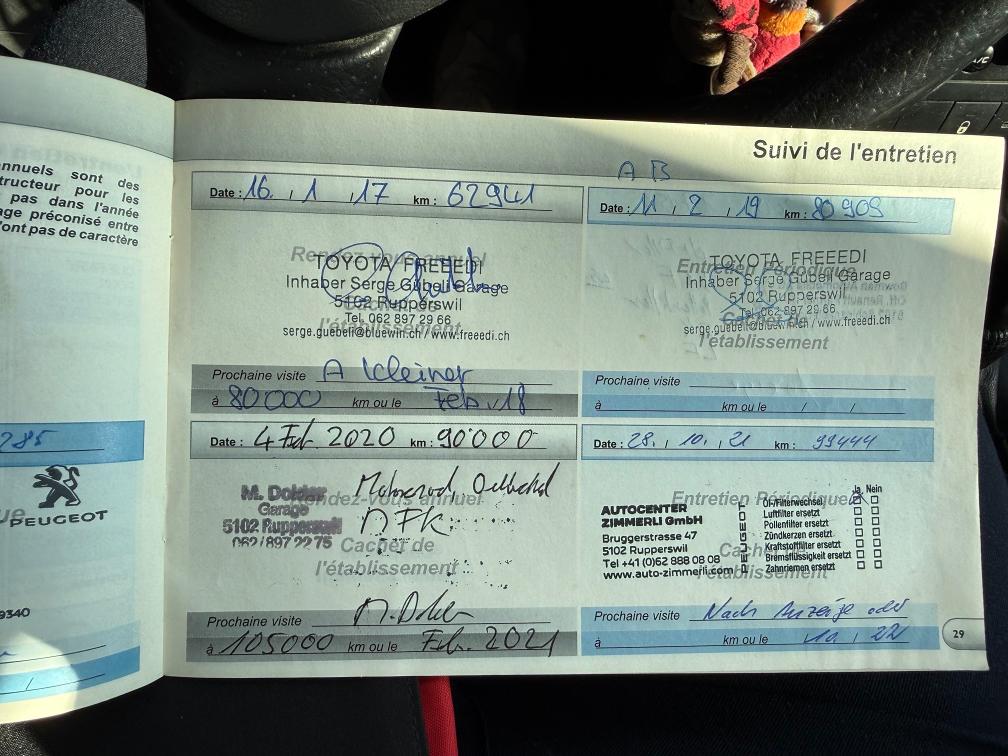 Suivi de l'entretien
nnuels sont des
tructeur pour les
pas dans l'année
age préconisé entre
'ont pas de caractère
285
PEUGEOT
9340
A B
Date : 16. , 1 , 17 km : 62941
Rendez-vous annuel
TOYOTA FREEEDI
Inhaber Serge Gübeli Garage
5102 Rupperswil
Tel. 062 897 29 66
Cachet de
l'établissement
serge.guebeli@bluewin.ch / www.freeedi.ch
Prochaine visite A Kleiner
à 80000 km ou le Feb. 18
Date : 11 , 2 , 19 km : 80909
Entretien Périodique
TOYOTA FREEEDI
Inhaber Serge Gübeli Garage
5102 Rupperswil
Tel. 062 897 29 66
Cachet de
serge.guebeli@bluewin.ch / www.freeedi.ch
l'établissement
Prochaine visite
à km ou le / /
Date : 4 Feb. 2020 km : 90'000
Rendez-vous annuel
M. Dokter
Garage
5102 Rupperswil
062/897 22 75
Cachet de
l'établissement
Prochaine visite
à 105000 km ou le Feb. 2021
Date : 28. , 10. , 21 km : 99444
Entretien Périodique
AUTOCENTER
ZIMMERLI GmbH
Bruggerstrasse 47
5102 Rupperswil
Tel +41 (0)62 888 08 08
www.auto-zimmerli.com
PEUGEOT
Ja Nein
Öl-/Filterwechsel
Luftfilter ersetzt
Pollenfilter ersetzt
Zündkerzen ersetzt
Kraftstofffilter ersetzt
Bremsflüssigkeit ersetzt
Zahnriemen ersetzt
Cachet de
l'établissement
Prochaine visite Nach Anzeige oder
à km ou le 10 , 22
29